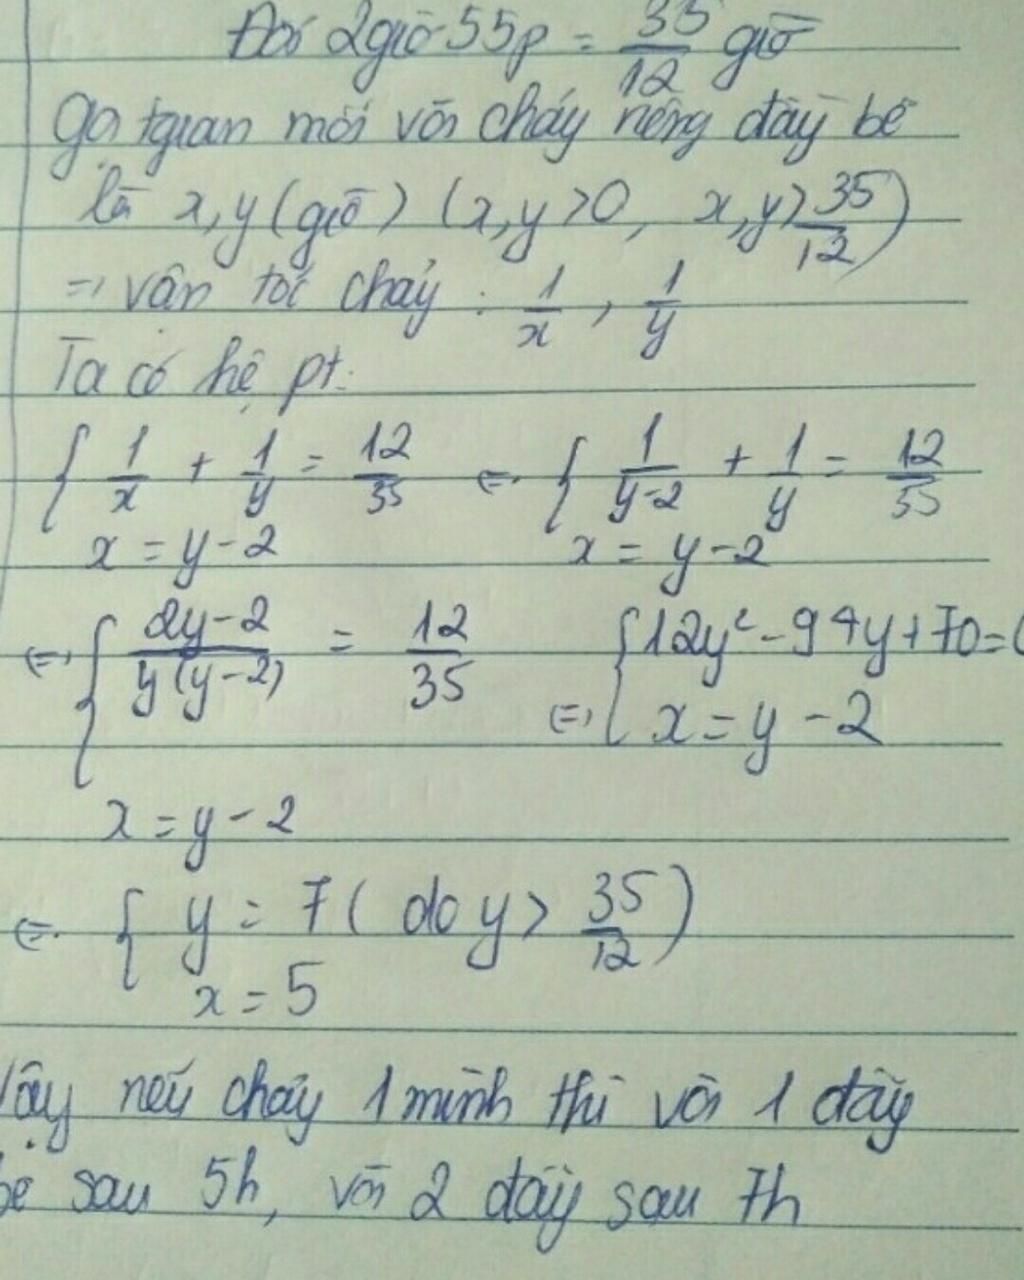 Đổi 2giờ 55p = 35/12 giờ
Gọi tgian mỗi vòi chảy riêng đầy bể
là x,y (giờ) (x,y >0, x,y > 35/12)
=> vận tốc chảy : 1/x , 1/y
Ta có hệ pt:
{ 1/x + 1/y = 12/35 <=> { 1/(y-2) + 1/y = 12/35
x = y-2 x = y-2
<=> { (2y-2)/(y(y-2)) = 12/35 <=> { 12y² - 94y + 70 = 0
x = y - 2
x = y - 2
<=> { y = 7 ( do y > 35/12 )
x = 5
Vậy nếu chảy 1 mình thì vòi 1 đầy
bể sau 5h, vòi 2 đầy sau 7h